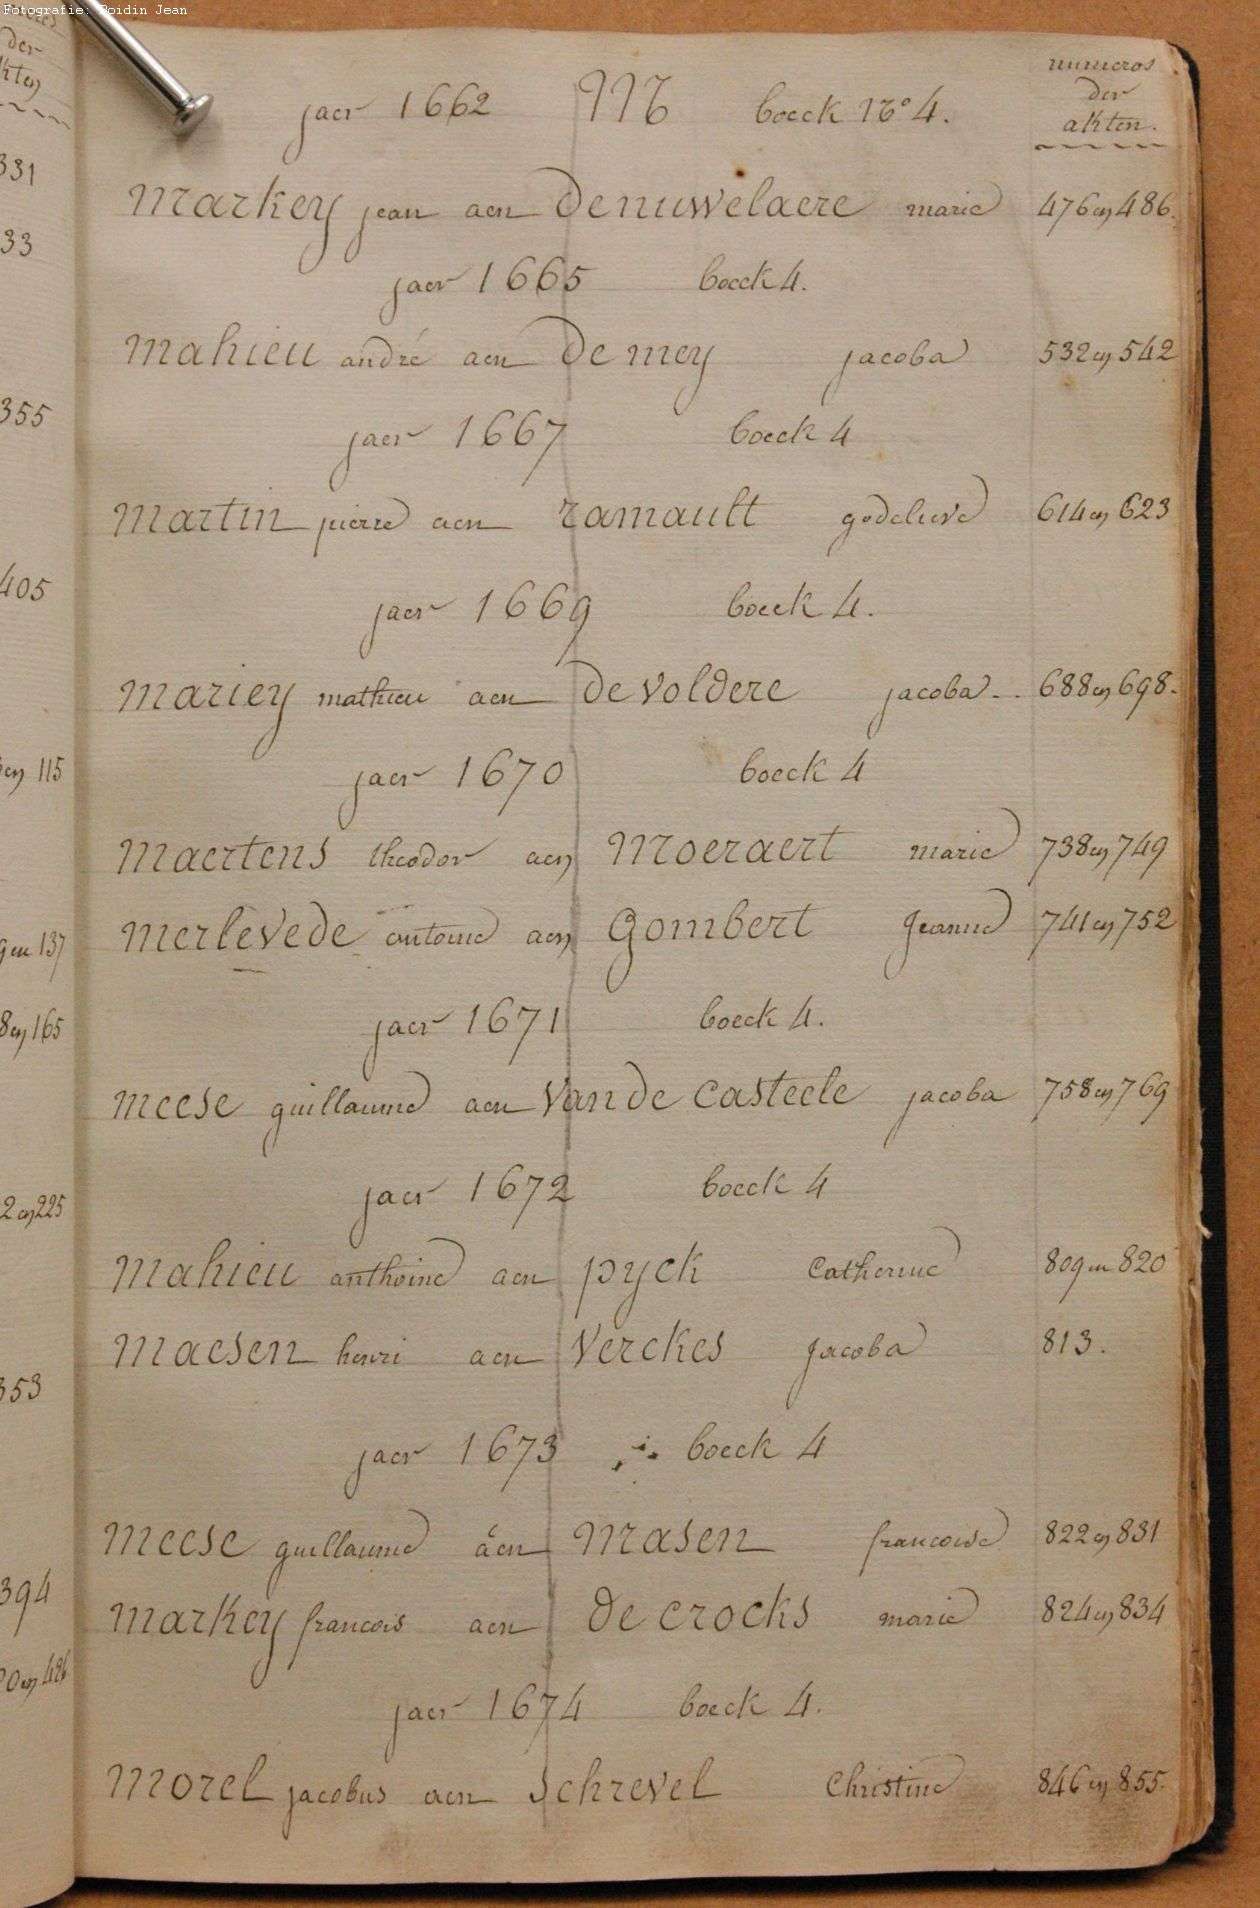 Fotografie: Poidin Jean
der
331
33
355
405
en 115
en 137
8 en 165
2 en 225
353
394
0 en 486
numeros
der
akten.
jaer 1662 M boeck N° 4.
Markey jean aen Denuwelaere marie 476 en 486.
jaer 1665 boeck 4.
Mahieu andré aen De mey jacoba 532 en 542
jaer 1667 boeck 4
Martin pierre aen ramault godelieve 614 en 623
jaer 1669 boeck 4.
Mariey mathieu aen de voldere jacoba 688 en 698.
jaer 1670 boeck 4
Maertens theodor aen Moeraert marie 738 en 749
Merlevede antoine aen Gombert Jeanne 741 en 752
jaer 1671 boeck 4.
Meese guillaume aen Van de Casteele jacoba 758 en 769
jaer 1672 boeck 4
Mahieu anthoine aen pyck Catherine 809 en 820
Maesen henri aen Verckes Jacoba 813.
jaer 1673 boeck 4
Meese guillaume aen Masen francoise 822 en 831
Markey francois aen de crocks marie 824 en 834
jaer 1674 boeck 4.
Morel jacobus aen Schrevel Christine 846 en 855.